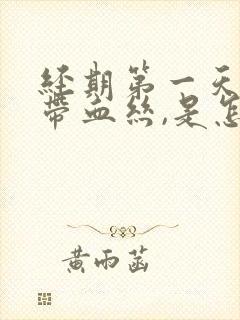 經期第一天
帶血絲,是怎
黃雨菡